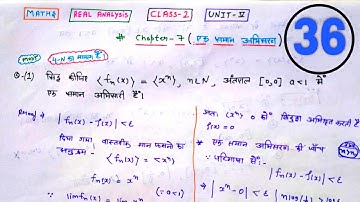 MATHS REAL ANALYSIS CLASS-2 UNIT-V
36
# Chapter-7 (एक समान अभिसरण)
4-N का मतलब है
Q.(1) सिद्ध कीजिए <fn(x)> = <xⁿ>, n∈N, अंतराल [0,a] a<1 में
एक समान अभिसारी है।
|fn(x) - f(x)| < ε
दिया गया वास्तविक मान फलनों का
अनुक्रम - <fn(x)> = <xⁿ>
fn(x) = xⁿ
(∵ 0<1)
अतः <xⁿ> 0 की बिन्दुश: अभिसृत करता है
f(x) = 0
* एक समान अभिसरण की जाँच
परिभाषा से:-
|fn(x) - f(x)| < ε
⇒ |xⁿ - 0| < ε